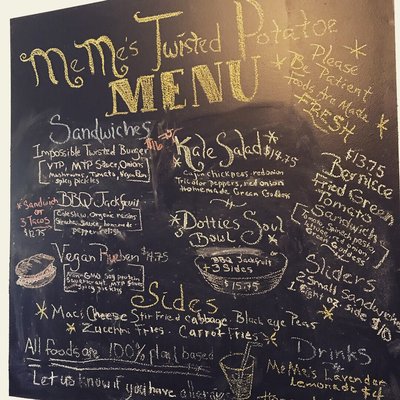 MeMe's Twisted Potatoe
MENU
* Please *
Be Patient
Foods Are Made
FRESH
Sandwiches
Impossible Twisted Burger
VTP, MTP Sauce, Onions,
Mushrooms, Tomato,
spicy pickles
* Sandwich
or
3 Tacos
$12.75
BBQ Jackfruit
Coleslaw, Organic raisins
Vegan Rueben $14.75
Non-GMO Soy protein
Sauerkraut MTP Sauce
Spicy pickles
Kale Salad $14.75
Cajun chickpeas, red onion
Tricolor peppers, red onion
Homemade Green Goddess
Dotties Soul
Bowl
BBQ Jackfruit
+ 3 Sides
$15.75
$13.75
Bernice
Fried Green
Tomato
Sandwich
Sliders
2 Small sandwiches
1 side $10
Sides
Mac & Cheese Stir Fried Cabbage Black eye Peas
Zucchini Fries. Carrot Fries
All foods are 100% plant based
Let us know if you have allergies
Drinks
MeMe's Lavender
Lemonade $4